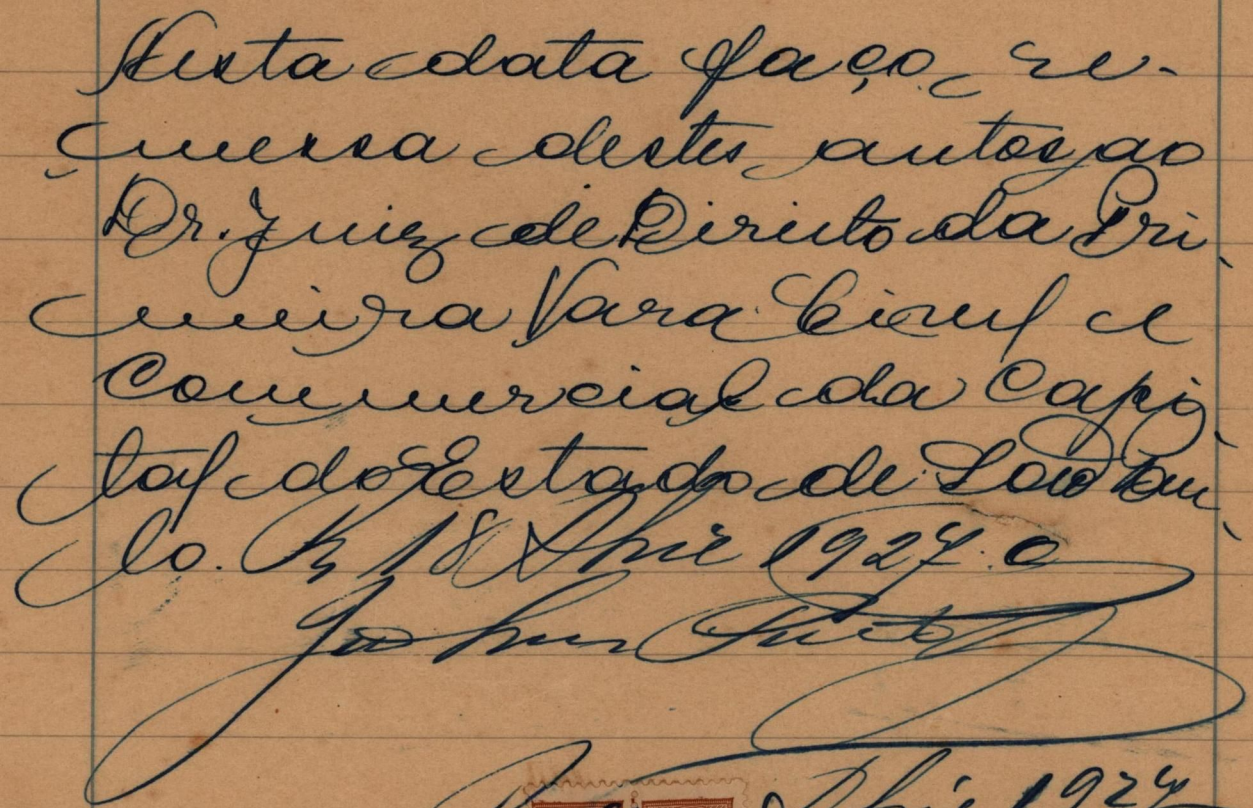 Nesta data faço re-
messa destes autos ao
Dr. Juiz de Direito da Pri-
meira Vara Civel e
Commercial da Capi-
tal do Estado de São Pau-
lo. 18 Abril 1927. O
Abril 1927